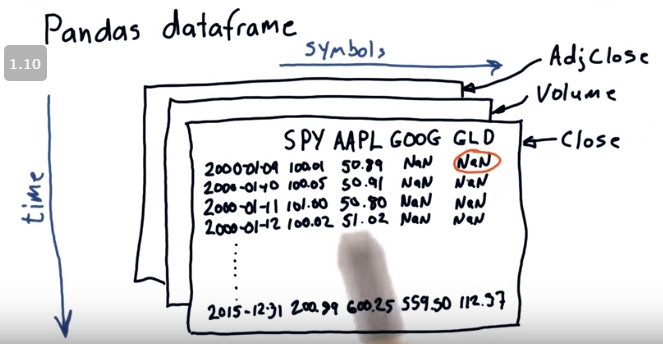 Pandas dataframe
1.10
symbols
AdjClose
Volume
Close
time
SPY AAPL GOOG GLD
2000-01-09 100.01 50.89 NaN NaN
2000-01-10 100.05 50.91 NaN NaN
2000-01-11 101.00 50.80 NaN NaN
2000-01-12 100.02 51.02 NaN NaN
2015-12-31 200.99 600.25 559.50 112.37